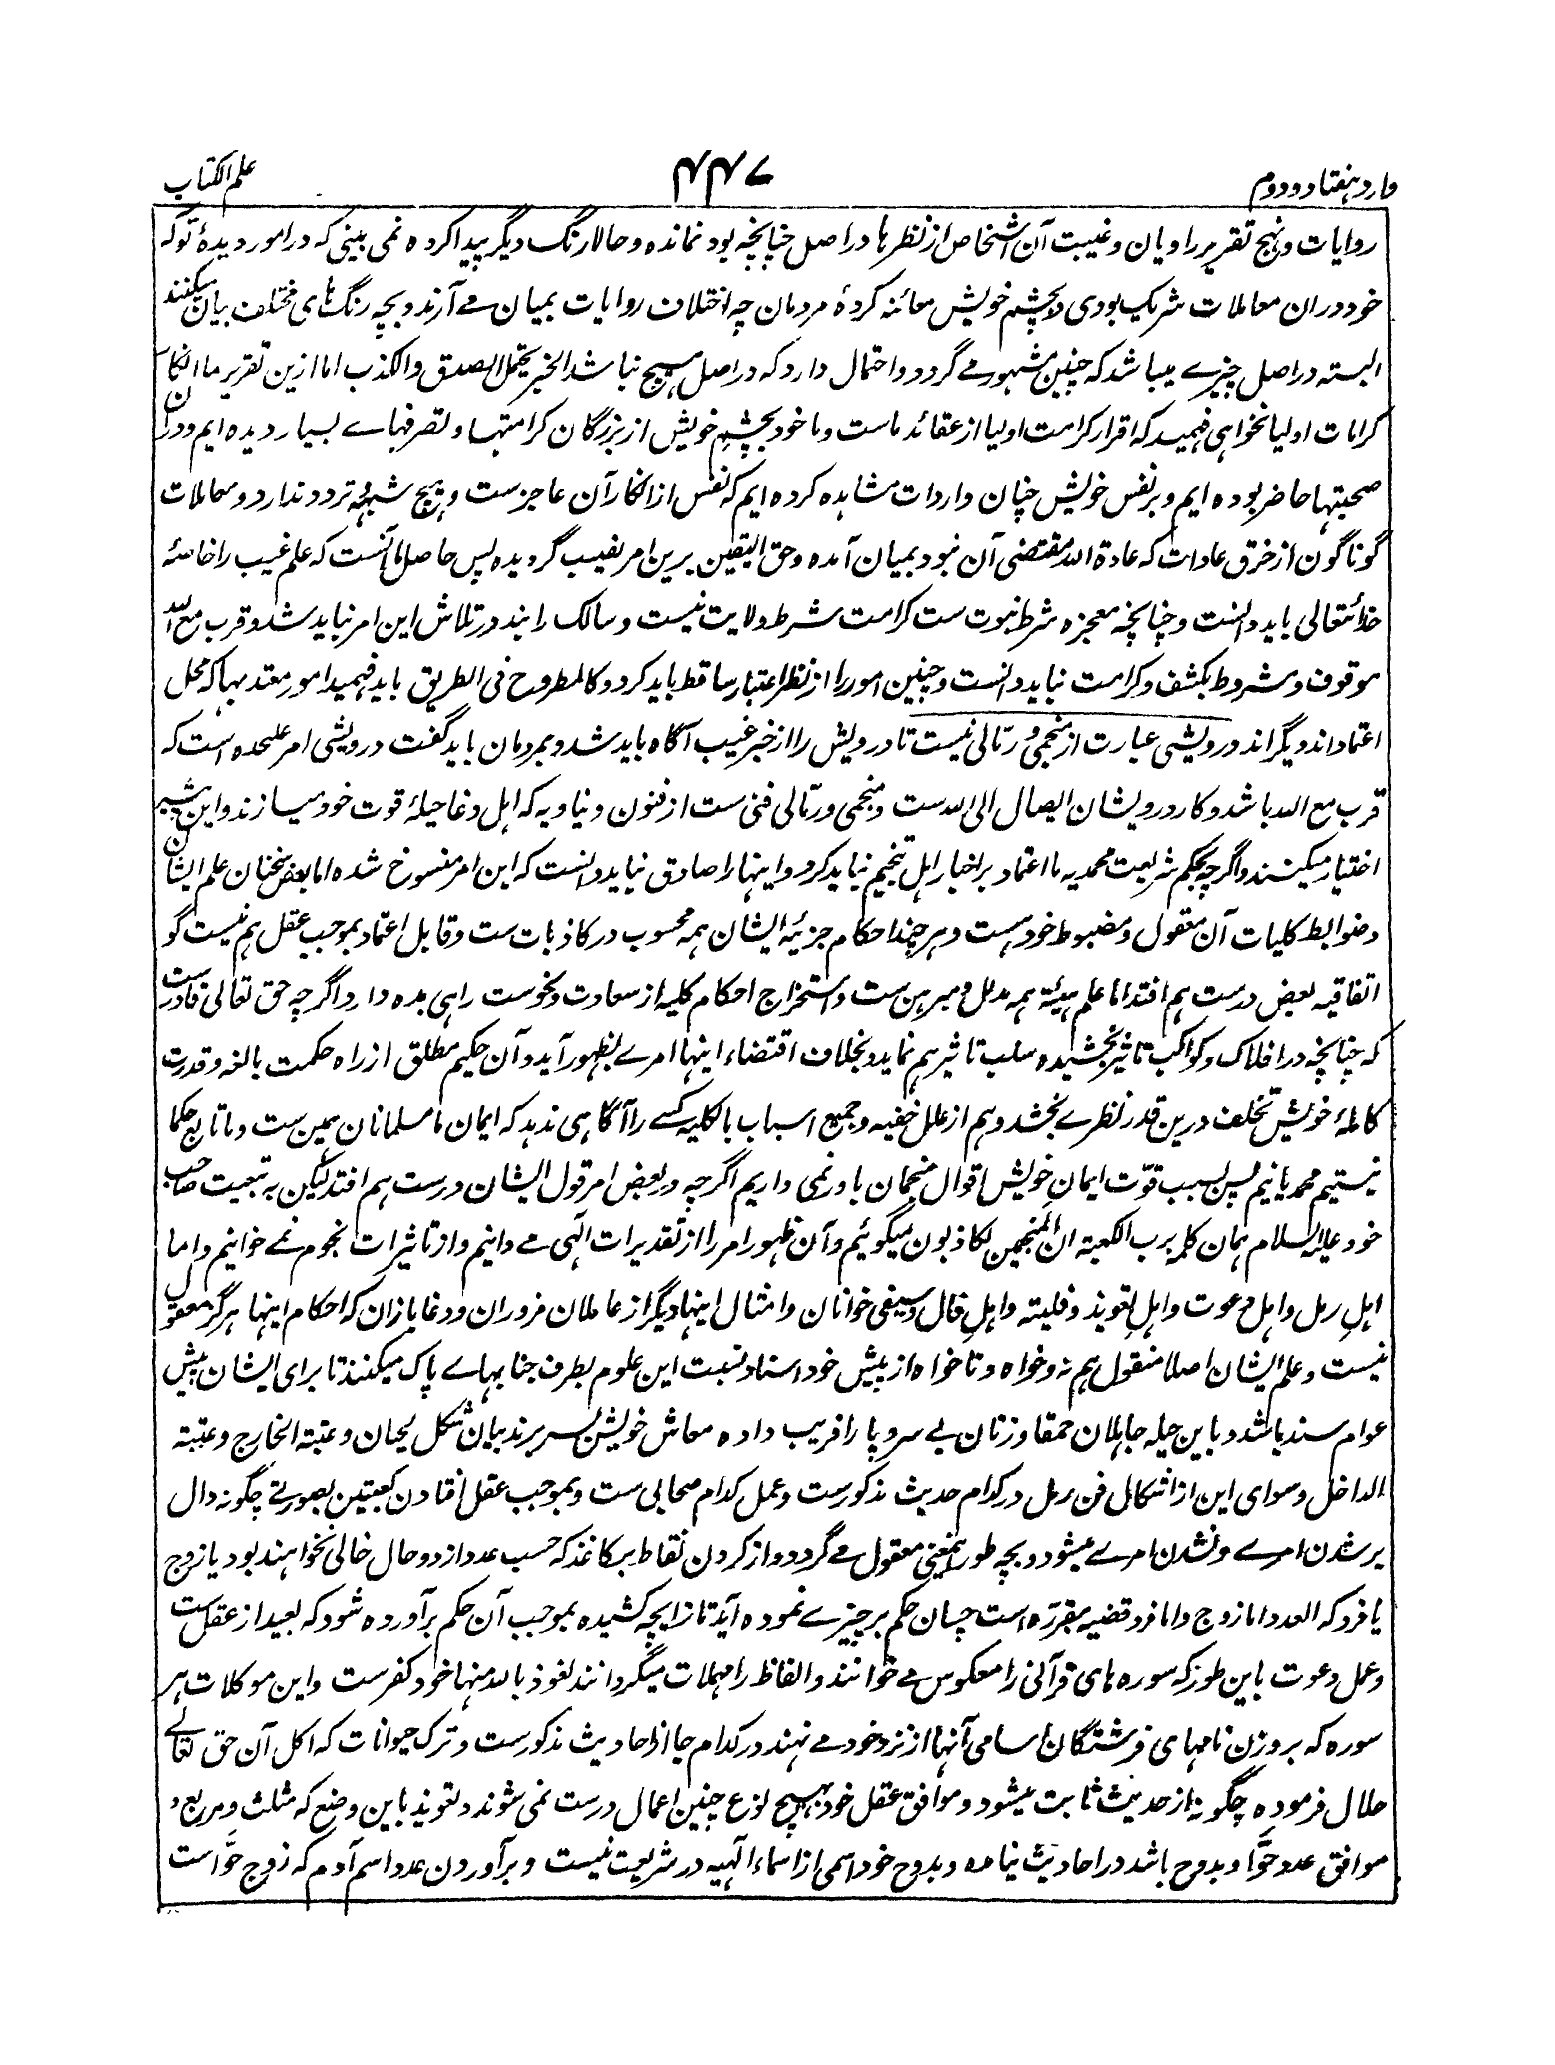 وارد هفتاد و دوم ۴۴۷ علم الکتاب
روایات و نهج تقریر راویان و غیبت آن اشخاص از نظرها در اصل چنانچه بود نمانده و حالا رنگ دیگر پیدا کرده نمی بینی که در امور دیدهٔ تو که
خود دران معاملات شریک بودی و بچشم خویش معائنه کردهٔ مردمان چه اختلاف روایات بمیان مے آرند و بچه رنگ های مختلف بیان میکنند
البته در اصل چیزے میباشد که چنین مشهور مے گردد و احتمال دارد که در اصل هیچ نباشد الخبر یحتمل الصدق والکذب اما ازین تقریر ما انکار
کرامات اولیا نخواهی فهمید که اقرار کرامت اولیا از عقائد ماست و ما خود بچشم خویش از بزرگان کرامتها و تصرفهاے بسیار دیده ایم و دران
صحبتها حاضر بوده ایم و بر نفس خویش چنان واردات مشاهده کرده ایم که نفس از انکار آن عاجزست و هیچ شبهه و تردد ندارد و معاملات
گوناگون از خرق عادات که عادة الله مقتضی آن نبود بمیان آمده و حق الیقین برین امر نصیب گردیده پس حاصل ما آنست که علم غیب را خاصهٔ
خدائتعالی باید دانست و چنانچه معجزه شرط نبوت ست کرامت شرط ولایت نیست و سالک را بند در تلاش این امر نباید شد و قرب مع الله
موقوف و مشروط بکشف و کرامت نباید دانست و چنین امور را از نظر اعتبار ساقط باید کرد و کالمطروح فی الطریق باید فهمید امور معتد بها که محل
اعتماد اند دیگر اند درویشی عبارت از منجمی و رمّالی نیست تا درویش را از خبر غیب آگاه باید شد و بمردمان باید گفت درویشی امر علیحده است که
قرب مع الله باشد و کار درویشان ایصال الی الله ست و منجمی و رمّالی فنی ست از فنون دنیاویه که اهل دغا حیلهٔ قوت خود میسازند و این پیشه
اختیار میکنند و اگرچه بحکم شریعت محمدیه ما اعتماد بر اخبار اهل تنجیم نباید کرد و اینها را صادق نباید دانست که این امر منسوخ شده اما بعض سخنان علم ایشان
و ضوابط کلیات آن معقول و مضبوط خود هست و هرچند احکام جزئیه ایشان همه محسوب در کاذبات ست و قابل اعتماد بموجب عقل هم نیست گو
اتفاقیه بعض درست هم افتد اما علم هیئة همه مدلل و مبرهن ست و استخراج احکام کلیه از سعادت و نحوست راهی بده دارد اگرچه حق تعالی قادرست
که چنانچه در افلاک و کواکب تاثیر بخشیده سلب تاثیر هم نماید و بخلاف اقتضاء اینها امرے بظهور آید و آن حکیم مطلق از راه حکمت بالغه و قدرت
کاملهٔ خویش تخلف درین قدر نظرے بخشد و هم از علل خفیه و جمیع اسباب بالکلیه کسے را آگاهی ندهد که ایمان ما مسلمانان همین ست و ما تابع حکما
نیستیم محمدیانیم پس بسبب قوّت ایمان خویش اقوال منجمان باور نمی داریم اگرچه در بعض امر قول ایشان درست هم افتد لیکن به تبعیت صاحب
خود علیه السلام همان کلمه برب الکعبه ان المنجمین لکاذبون میگوئیم و آن ظهور امر را از تقدیرات الٰهی مے دانیم و از تاثیرات نجوم نمے خوانیم و اما
اهلِ رمل و اهل دعوت و اهلِ تعویذ و فلیته و اهلِ فال و سیفی خوانان و امثال اینها دیگر از عاملان مزوران و دغابازان که احکام اینها هرگز معقول
نیست و علم ایشان اصلا منقول هم نه و خواه و ناخواه از پیش خود اسناد و نسبت این علوم بطرف جنابهاے پاک میکنند تا برای ایشان پیش
عوام سند باشد و باین حیله جاهلان حمقا و زنان بے سر و پا را فریب داده معاش خویش بسر برند بیان شکل لحیان و عتبة الخارج و عتبة
الداخل و سوای این از اشکال فن رمل در کدام حدیث مذکورست و عمل کدام صحابی ست و بموجب عقل افتادن کعبتین بصورتے چگونه دال
بر شدن امرے و نشدن امرے میشود و بچه طور اینمعنی معقول مے گردد و از کردن نقاط بر کاغذ که حسب عدد از دو حال خالی نخواهند بود یا زوج
یا فرد که العدد اما زوج و اما فرد قضیه مقررّه است چسان حکم بر چیزے نموده آید تا زایچه کشیده بموجب آن حکم برآورده شود که بعید از عقل ست
و عمل دعوت باین طور که سوره های قرآنی را معکوس مے خوانند و الفاظ را مهملات میگردانند نعوذ بالله منها خود کفرست و این موکلات هر
سوره که بر وزن نامهای فرشتگان اسامی آنها از نزد خود مے نهند در کدام جا از احادیث مذکورست و ترک حیوانات که اکل آن حق تعالے
حلال فرموده چگونه از حدیث ثابت میشود و موافق عقل خود بهیچ نوع چنین اعمال درست نمی شوند و تعویذ باین وضع که مثلث و مربع و
موافق عدد حوّا و بدوح باشد در احادیث نیامده و بدوح خود اسمی از اسماء الٰهیه در شریعت نیست و برآوردن عدد اسم آدم که زوج حوّاست